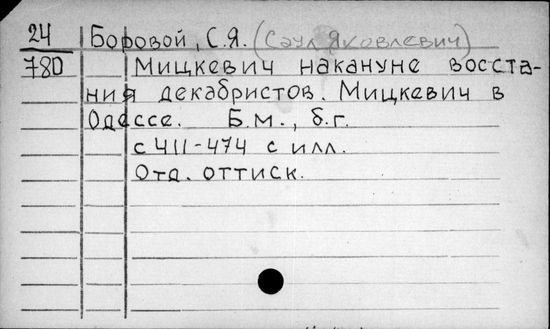 24 Боровой, С.Я. (Саул Яковлевич)
780 Мицкевич накануне восста-
ния декабристов. Мицкевич в
Одессе. Б.м., б.г.
с 411-474 с илл.
Отд. оттиск.